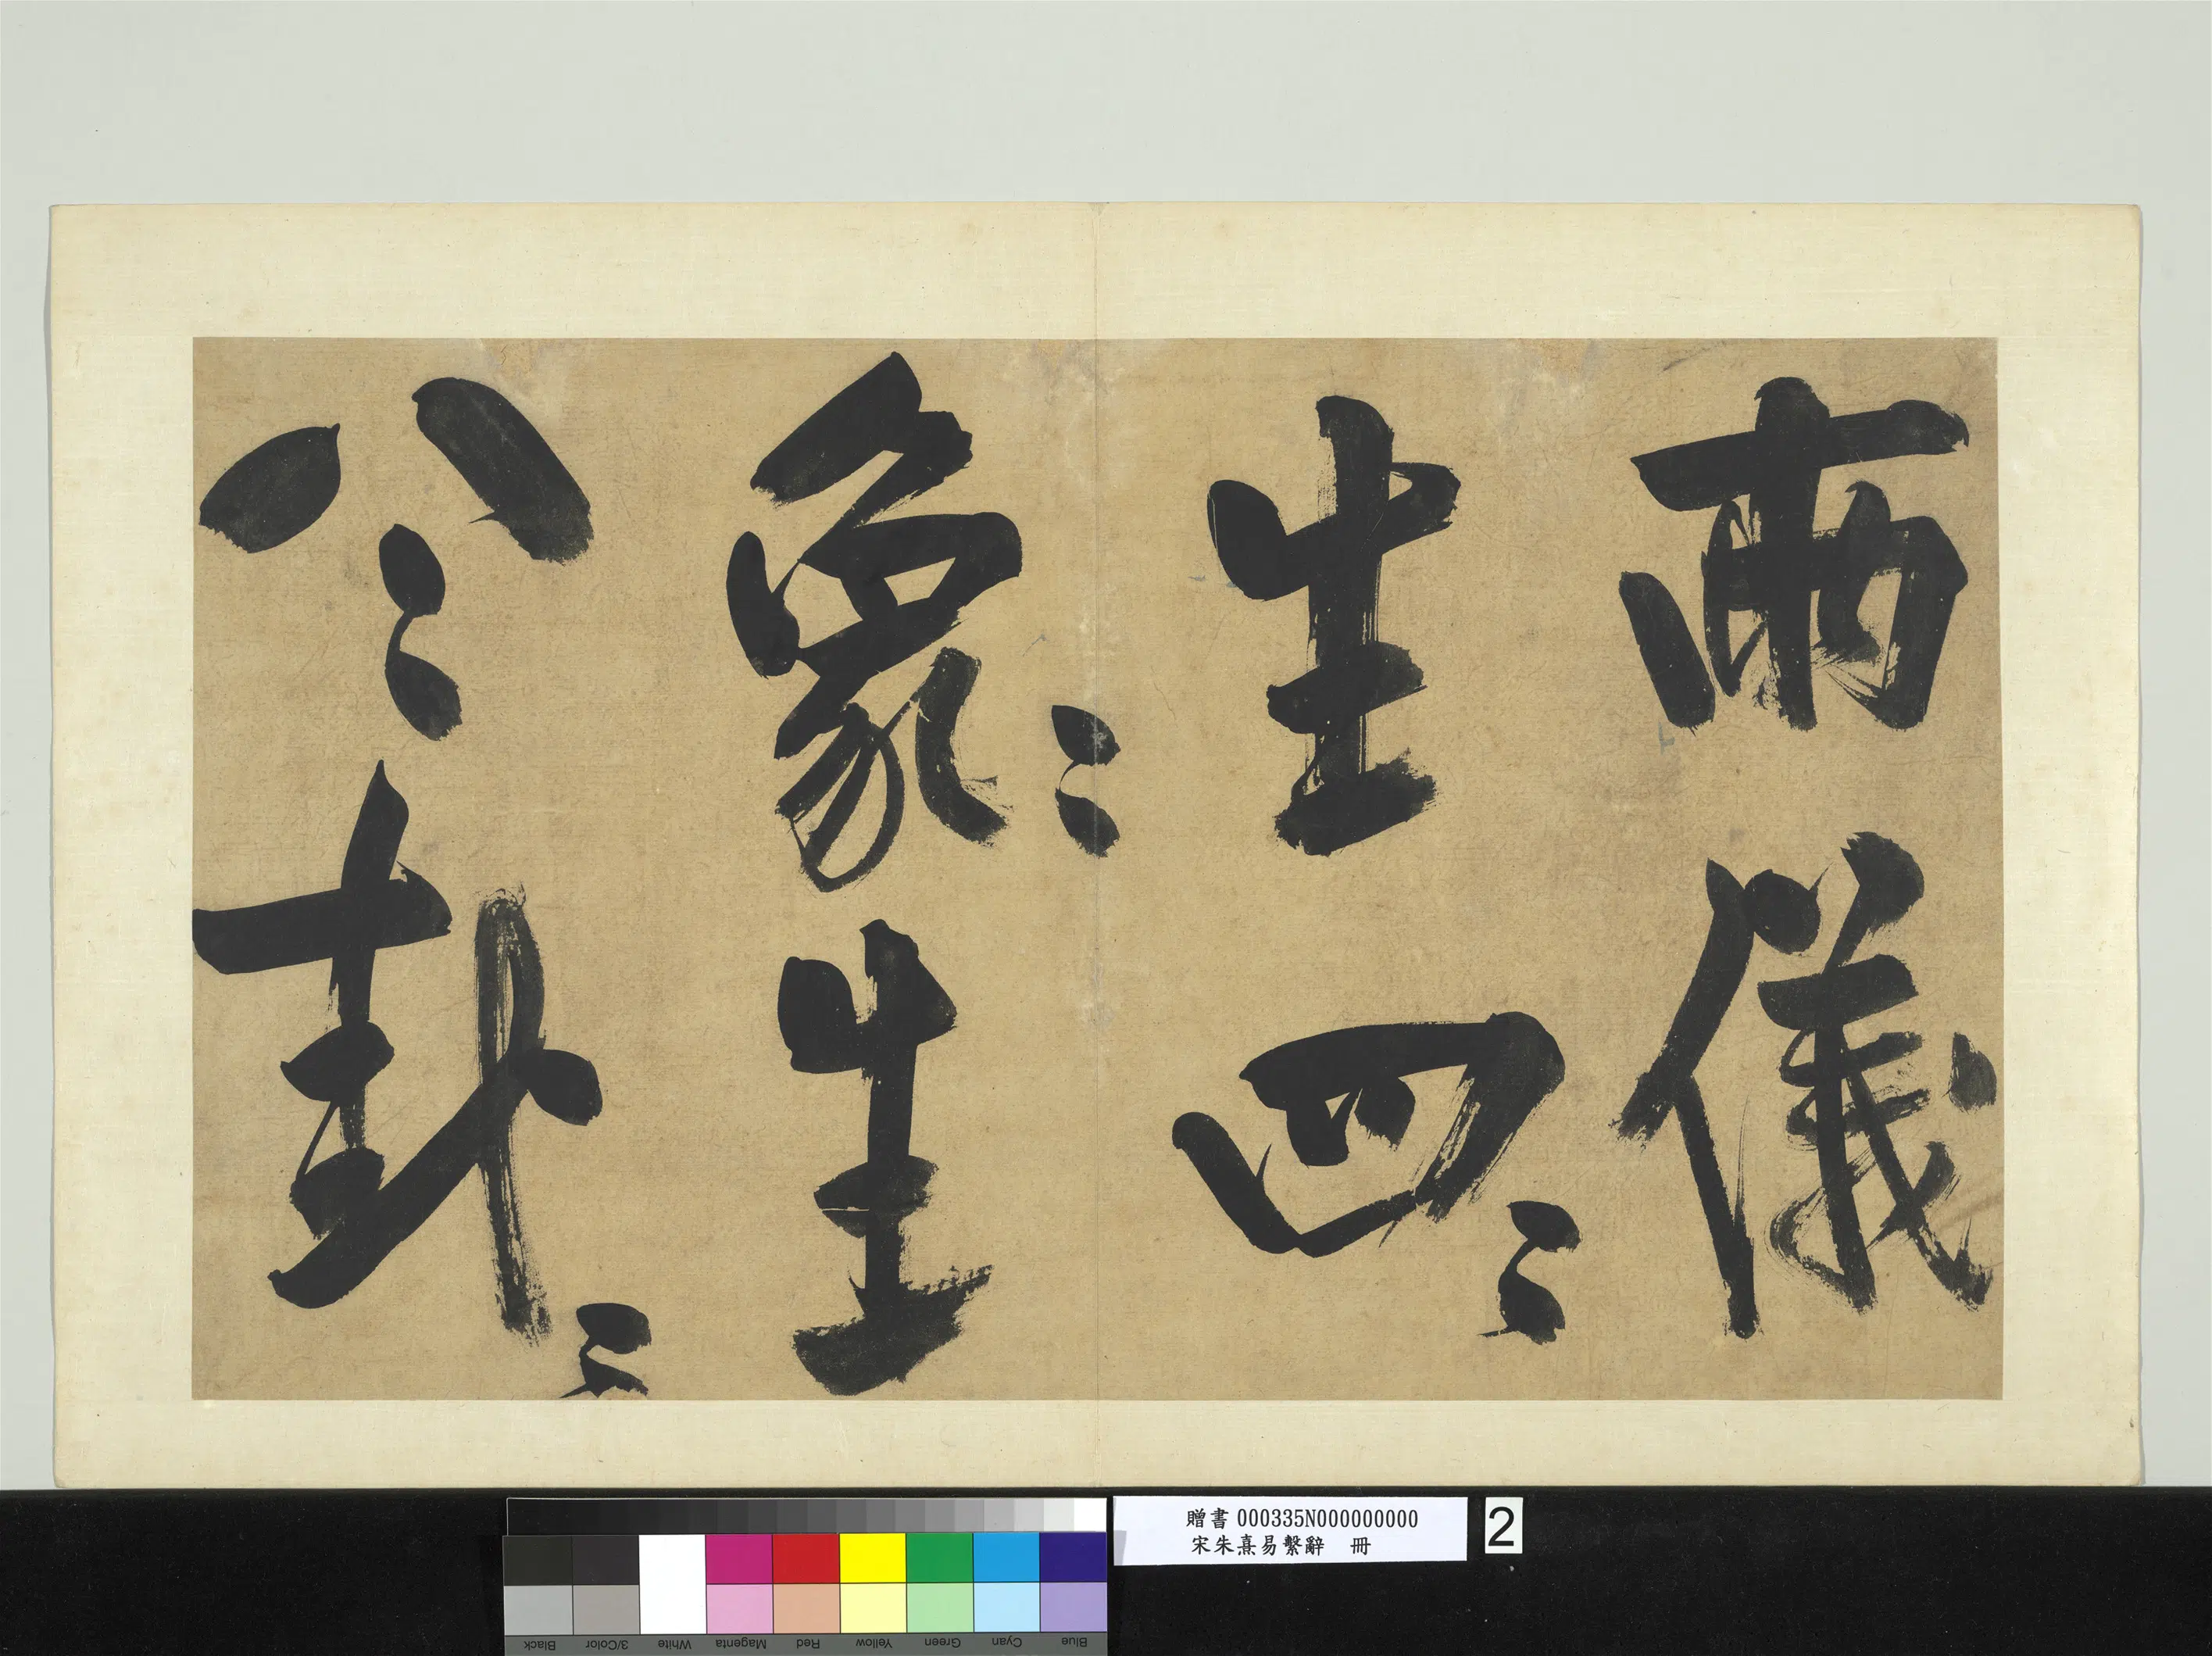 兩儀
生四〻
象〻生
八〻卦〻
贈書 000335N000000000
宋朱熹易繫辭 冊
2
Black
3/Color
White
Magenta
Red
Yellow
Green
Cyan
Blue